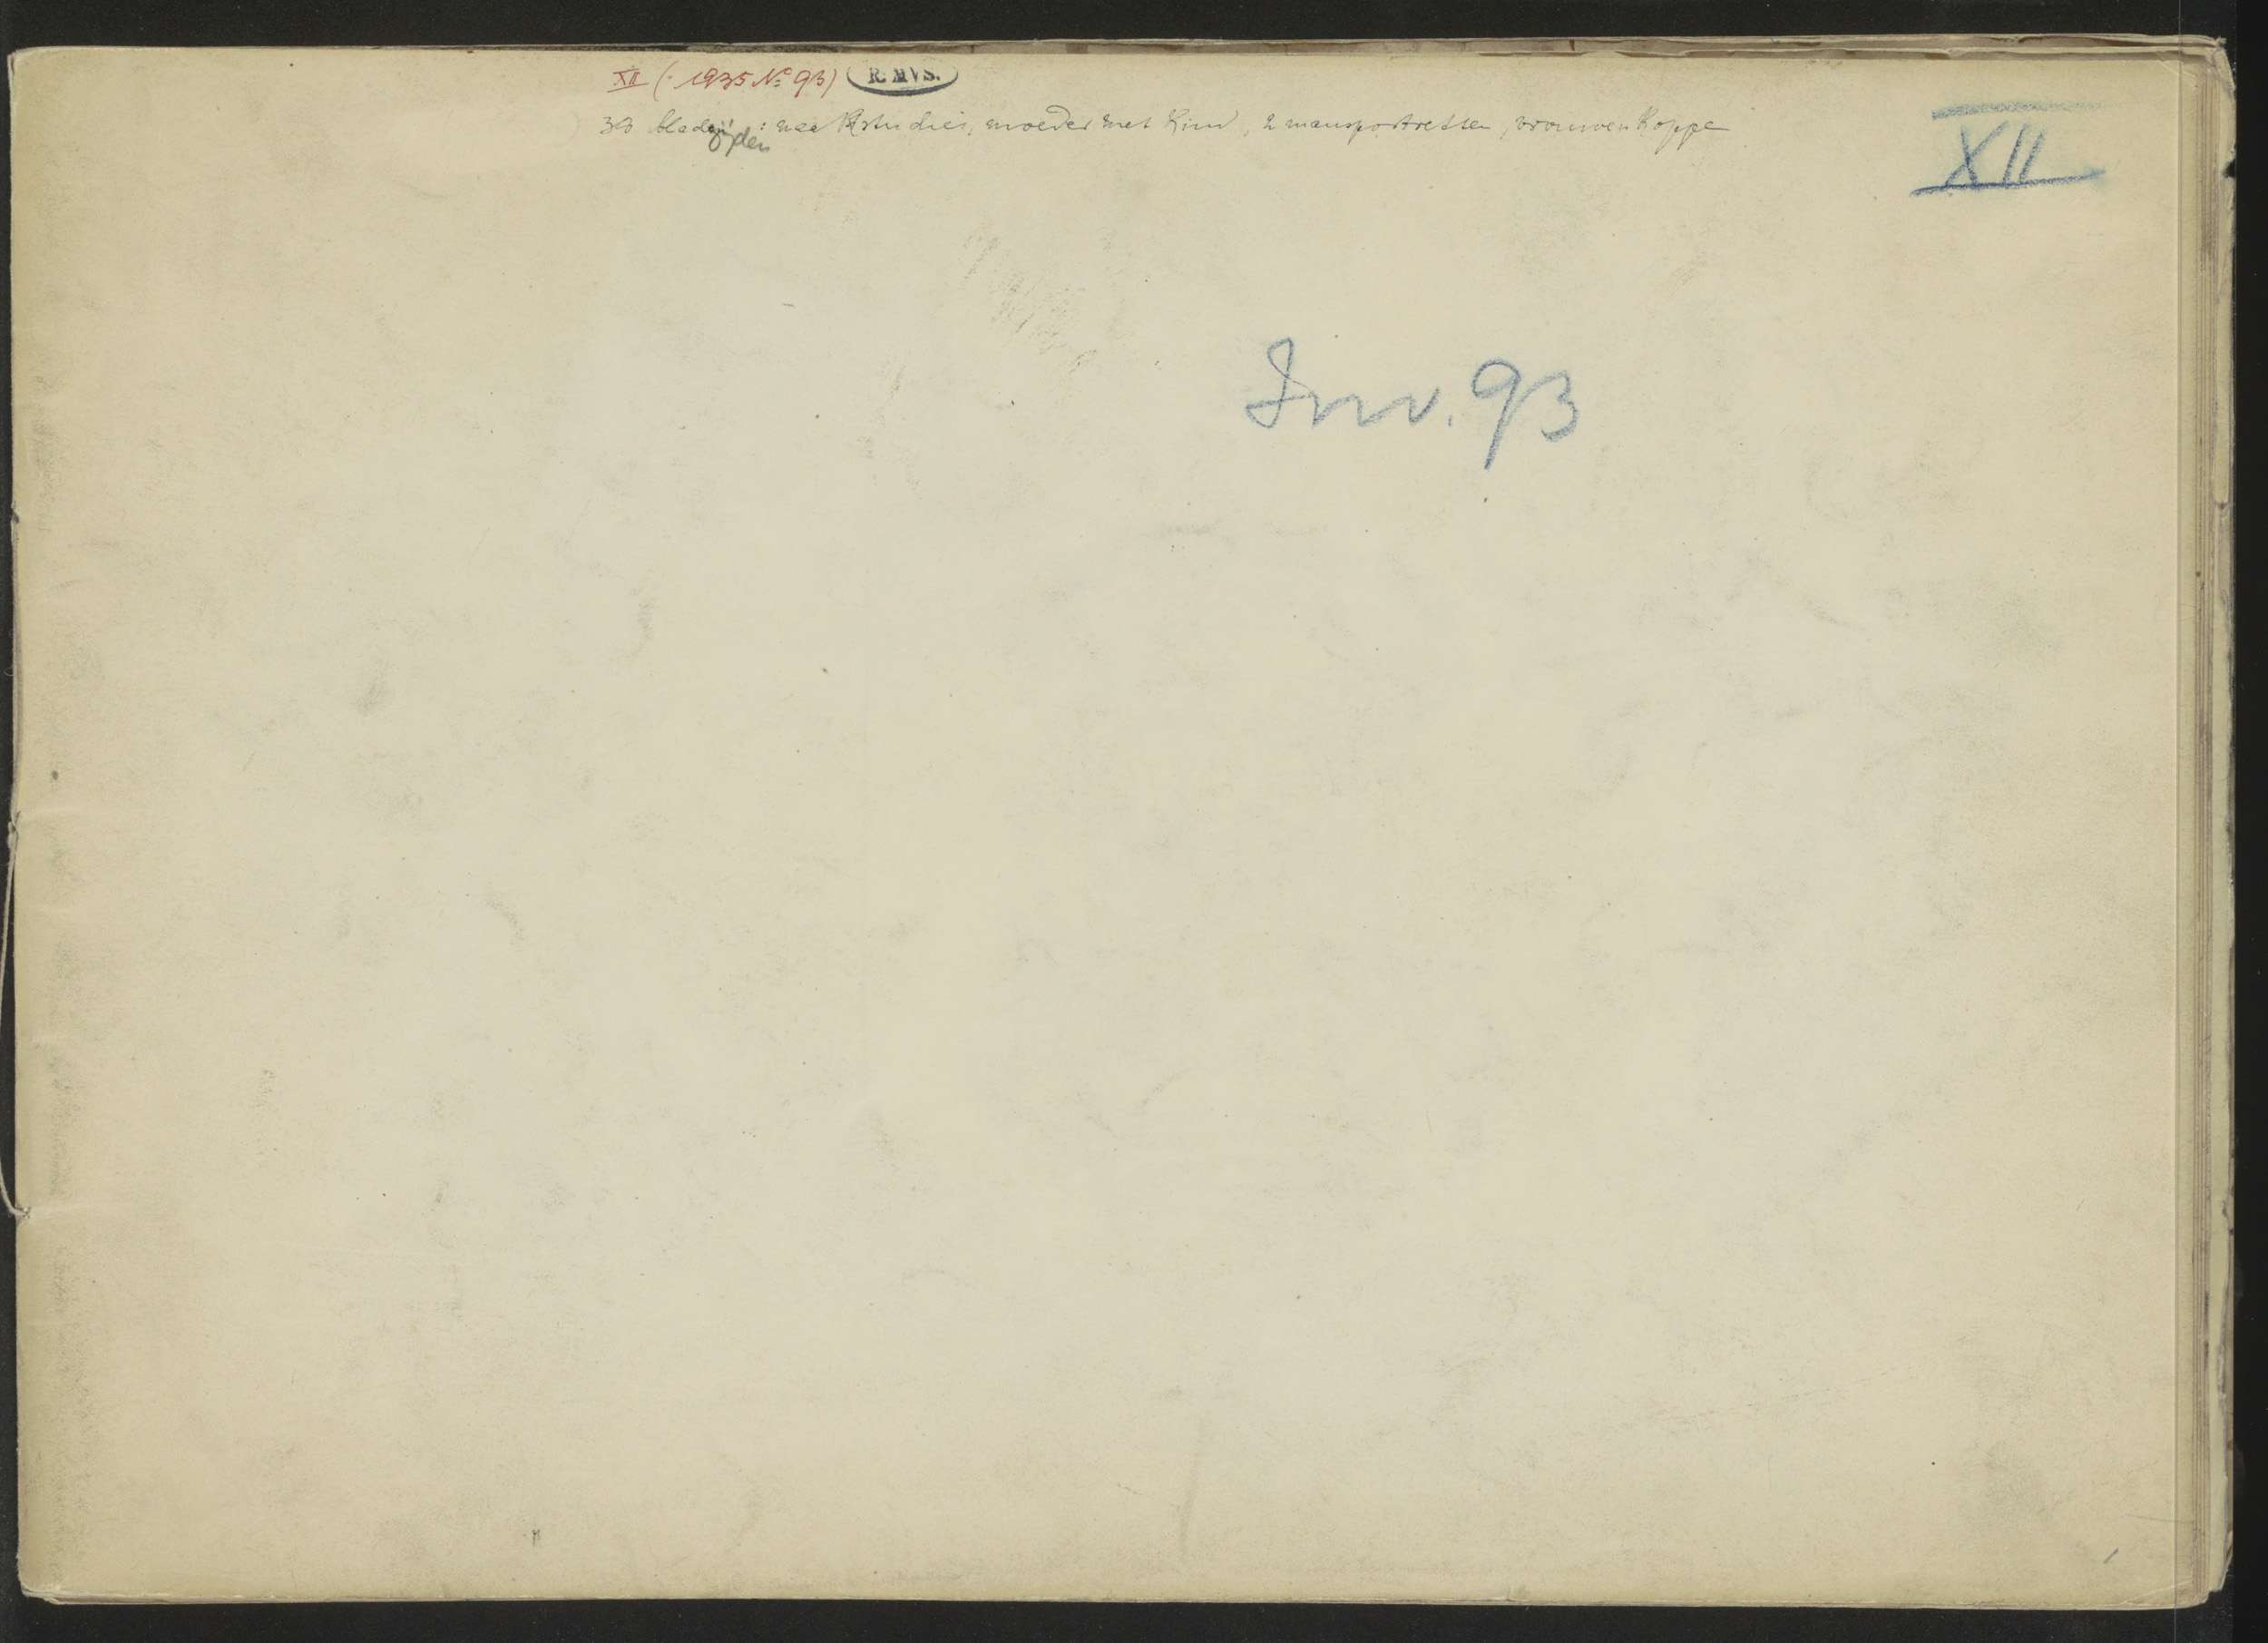 XII (. 1935 Nº 93) R. MVS.
33 bladzijden : naaktstudies, moeder met Kind, 2 mansportretten, vrouwenkoppe
XII
Inv. 93